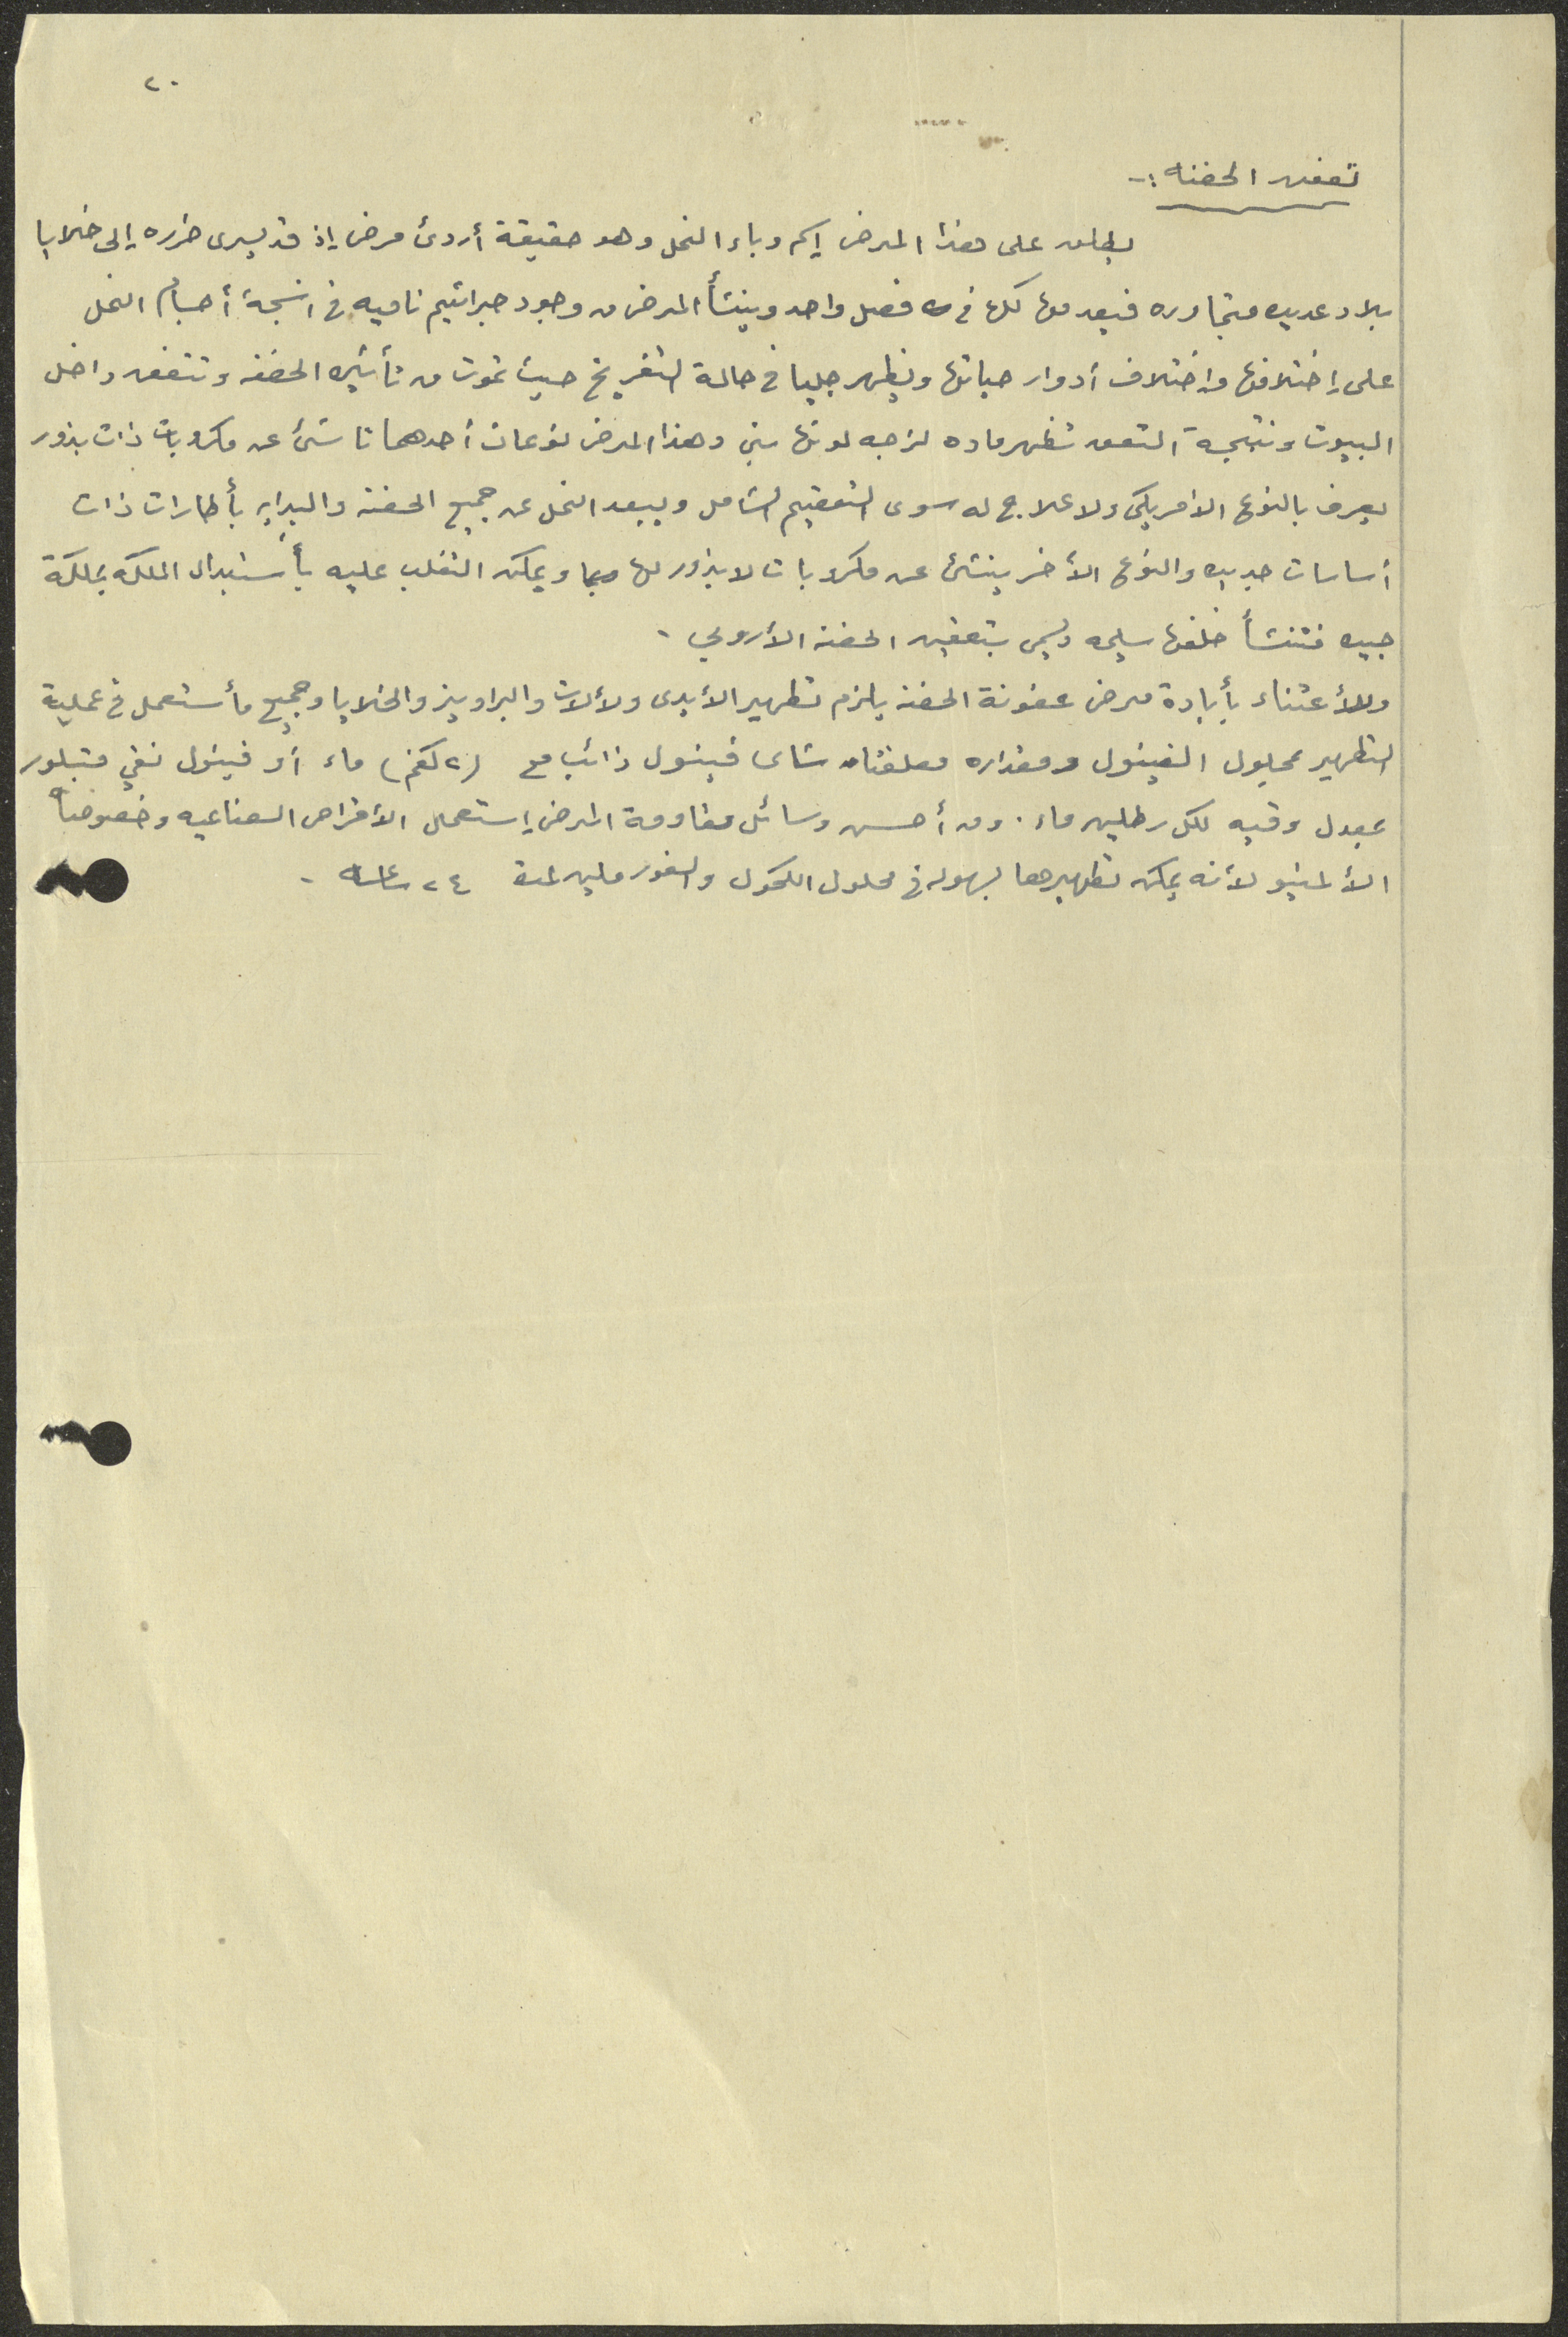 ٢٠
تعفن الحضنه :-
يطلق على هذا المرض إسم وباء النحل وهو حقيقة أردئ مرض إذ قد يسرى ضرره إلى خلايا
بلاد عديده متجاوره فيعدمها كلها في فصل واحد وينشأ المرض من وجود جراثيم ناميه في انسجة أجسام النحل
على إختلافها وإختلاف أدوار حياتها ويظهر جليا في حالة التفريخ حيث تموت من تأثيره الحضنه وتتعفن داخل
البيوت ونتيجة التعفن تظهر ماده لزجه لونها بني وهذا المرض نوعان أحدهما ناشئ عن مكروبات ذات بذور
يعرف بالنوع الامريكي ولا علاج له سوى التعقيم الشامل ويبعد النحل عن جميع الحضنة والبداية بأطارات ذات
أساسات جديده والنوع الأخر ينشئ عن مكروبات لا بذور لها ويمكن التغلب عليه بأستبدال الملكه بملكة
جيده فتنشأ خلفها سليمه ويسمى بتعفين الحضنة الأروبي .
وللأعتناء بأبادة مرض عفونة الحضنة يلزم تطهير الأيدى ولألات والبراويز والخلايا وجميع مأستعمل في عملية
التطهير بمحلول الفينول ومقداره معلقتان شاى فينول ذائب مع (٢ كغم) ماء أو فينول نقي متبلور
بمعدل وقيه لكل رطلين ماء . ومن أحسن وسائل مقاومة المرض إستعمال الأقراص الصناعيه وخصوصاً
الألمنيو لأنه يمكن تطهيرها بسهوله في محلول الكحول والفورملين لمدة ٢٤ ساعه .